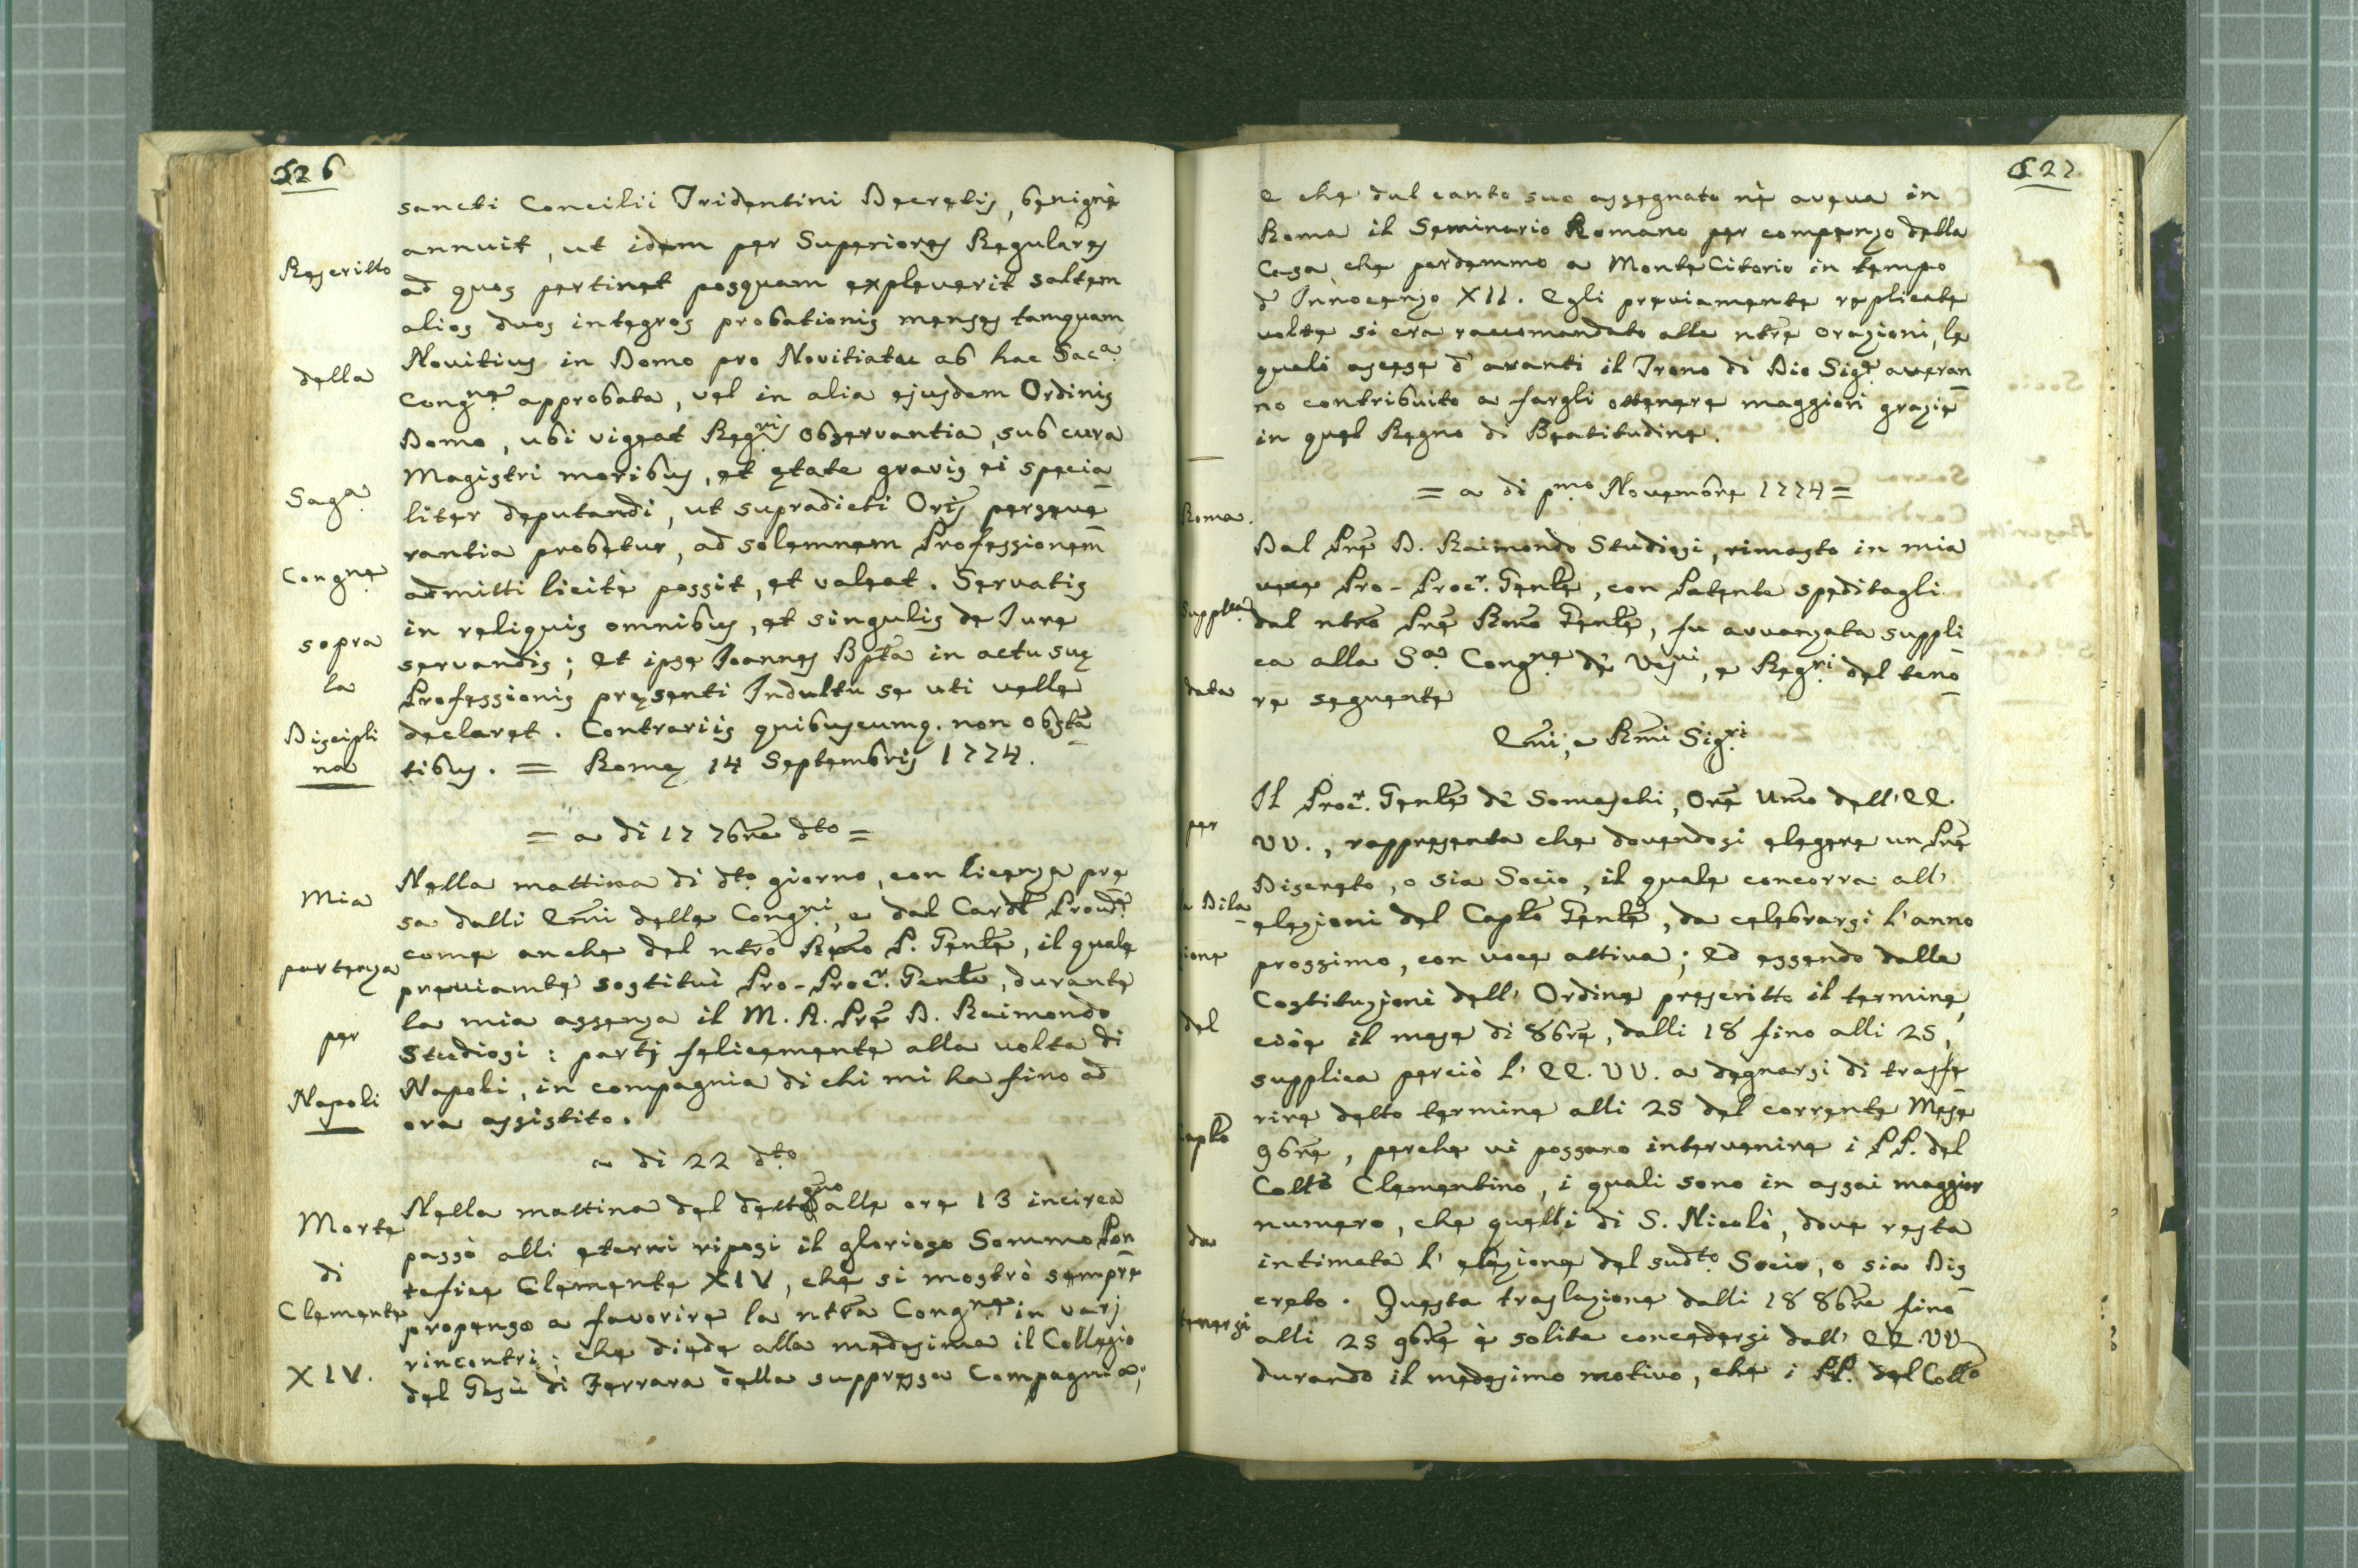 626
sancti Concilii Tridentini Decretis, benignè
annuit, ut idem per Superiores Regulares
ad quos pertinet posquam expleverit saltem
alios duos integros probationis menses tamquam
Novitius in Domo pro Novitiatu ab hac Sac.a
Congne. approbata, vel in alia ejusdem Ordinis
Domo, ubi vigeat Regris observantia, sub cura
Magistri moribus, et ętate gravis ei specia
liter deputandi, ut supradicti Oris perseve
rantia probetur, ad solemnem Professionem
admitti licitè possit, et valeat. Servatis
in reliquis omnibus, et singulis de Jure
servandis; Et ipse Joannes Bpta in actu suę
Professionis pręsenti Indultu se uti velle
declaret. Contrariis quibuscumq. non obsta
tibus. = Romę 14 Septembris 1774.
Rescritto
della
Sag.a
Congne.
sopra
la
Discipli
na
= a di 17 7bre dto =
Nella mattina di dto. giorno, con licenza pre
sa dalli Emi delle Congni, e dal Cardl Provdre
come anche del ntro Rmo P. Genle, il quale
previamte sostituì Pro-Procr. Genle, durante
la mia assenza il M. R. Pre D. Raimondo
Studiosi: partj felicemente alla volta di
Napoli, in compagnia di chi mi ha fino ad
ora assistito.
Mia
partenza
per
Napoli
a di 22 dto.
Nella mattina del detto alle ore 13 incirca
passò alli eterni riposi il glorioso Sommo Pon
tefice Clemente XIV, che si mostrò sempre
propenso a favorire la ntra Congne. in varj
rincontri; che diede alla medesima il Collegio
del Gesù di Ferrara della suppressa Compagnia;
Morte
di
Clemente
XIV.
627
e che dal canto suo assegnato nè aveva in
Roma il Seminario Romano per compenso della
Casa che perdemmo a Monte Citorio in tempo
d' Innocenzo XII. Egli previamente replicate
volte si era raccomandato alle ntre orazioni, le
quali ascese d' avanti il Trono di Dio Sigre. averan
no contribuito a fargli ottenere maggiori grazie
in quel Regno di Beatitudine.
= a di pmo Novembre 1774 =
Dal Pre D. Raimondo Studiosi, rimasto in mia
vece Pro-Procr. Genle, con Patente speditagli
dal ntro Pre Rmo Genle, fu avvanzata suppli
ca alla Sa. Congne. dè Vesvi, e Regri. del teno
re seguente
Emi, e Rmi Sigri
Il Procr. Genle dè Somaschi, Ore Umo dell' EE.
VV., rappresenta che dovendosi elegere un Pre
Discreto, o sia Socio, il quale concorra all'
elezioni del Caplo Genle, da celebrarsi l' anno
prossimo, con voce attiva; Ed essendo dalla
Costituzioni dell' Ordine prescritto il termine,
cioè il mese di 8bre, dalli 18 fino alli 25,
supplica perciò l' EE. VV. a degnarsi di trasfe
rire detto termine alli 25 del corrente Mese
9bre, perche vi possano intervenire i PP. del
Collo Clementino, i quali sono in assai maggior
numero, che quelli di S. Nicolò, dove resta
intimata l' elezione del sudto. Socio, o sia Dis
creto. Questa traslazione dalli 18 8bre fino
alli 25 9bre è solita concedersi dall' EE. VV
durando il medesimo motivo, che i PP. del Collo
Roma.
Supplca
data
per
la Dila
zione
del
Caplo
da
tenersi